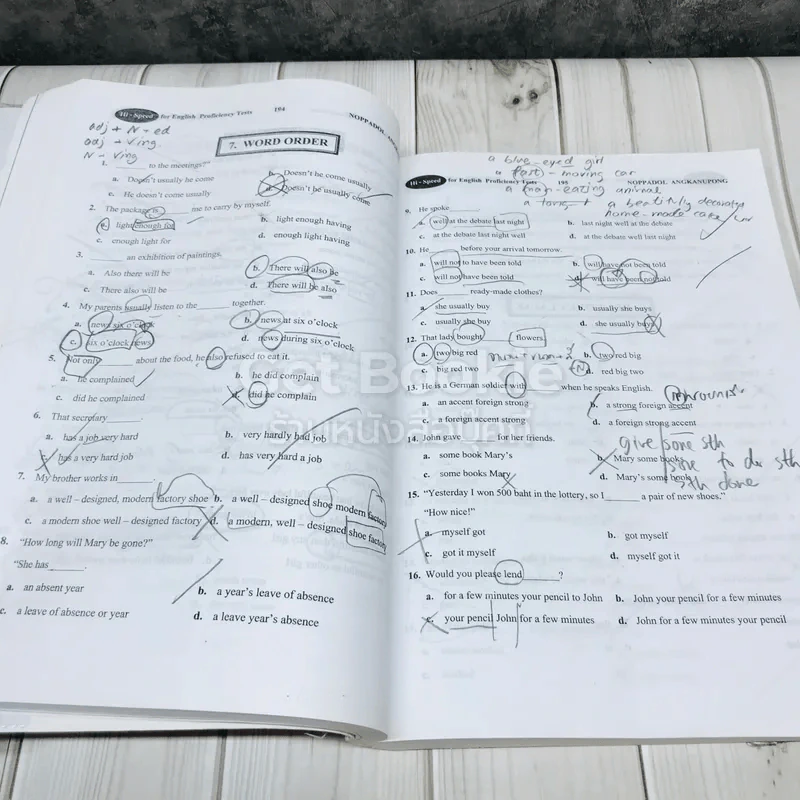 Hi - Speed for English Proficiency Tests 194 NOPPADOL
adj + N - ed
adj + Ving
N - Ving
7. WORD ORDER
1. to the meetings?"
a. Doesn't usually he come b. Doesn't he come usually
c. He doesn't come usually d. Doesn't he usually come
2. The package is me to carry by myself.
a. light enough for b. light enough having
c. enough light for d. enough light having
3. an exhibition of paintings.
a. Also there will be b. There will also be
c. There also will be d. There will be also
4. My parents usually listen to the together.
a. news six o'clock b. news at six o'clock
c. six o'clock news d. news during six o'clock
5. Not only about the food, he also refused to eat it.
a. he complained b. he did complain
c. did he complained d. did he complain
6. That secretary .
a. has a job very hard b. very hardly had job
c. has a very hard job d. has very hard a job
7. My brother works in .
a. a well – designed, modern factory shoe b. a well – designed shoe modern factory
c. a modern shoe well – designed factory d. a modern, well – designed shoe factory
8. "How long will Mary be gone?"
"She has ."
a. an absent year b. a year's leave of absence
c. a leave of absence or year d. a leave year's absence
a blue-eyed girl
a fast - moving car
Hi - Speed for English Proficiency Tests 195 NOPPADOL ANGKANUPONG
a man-eating animal
a beautifully
home-made
9. He spoke .
a. well at the debate last night b. last night well at the debate
c. at the debate last night well d. at the debate well last night
10. He before your arrival tomorrow.
a. will not to have been told b. will have not been told
c. will not have been told d. will have been not told
11. Does ready-made clothes?
a. she usually buy b. usually she buys
c. usually she buy d. she usually buys
12. That lady bought flowers.
a. two big red b. two red big
c. big red two d. red big two
13. He is a German soldier with when he speaks English.
a. an accent foreign strong b. a strong foreign accent
c. a foreign accent strong d. a foreign strong accent
14. John gave for her friends.
give some sth
a. some book Mary's b. Mary some books
c. some books Mary d. Mary's some book
to do sth
sth done
15. "Yesterday I won 500 baht in the lottery, so I a pair of new shoes."
"How nice!"
a. myself got b. got myself
c. got it myself d. myself got it
16. Would you please lend ?
a. for a few minutes your pencil to John b. John your pencil for a few minutes
c. your pencil John for a few minutes d. John for a few minutes your pencil
Got Bookie
ร้านหนังสือมือ